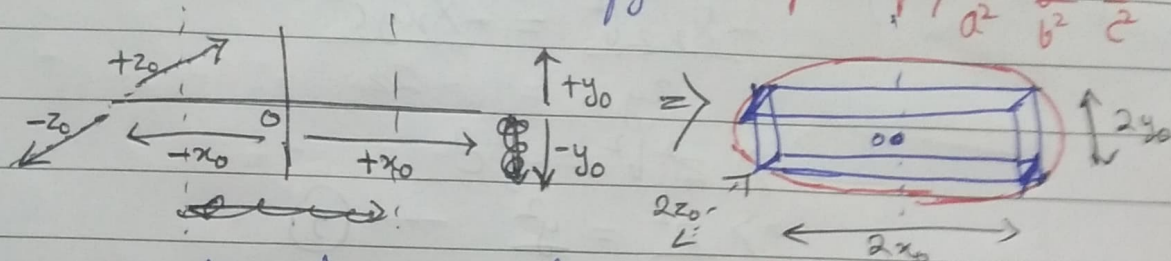 a² b² c²
+z₀
-z₀
0
-x₀
+x₀
+y₀
-y₀
=>
00
2y₀
2z₀
2x₀